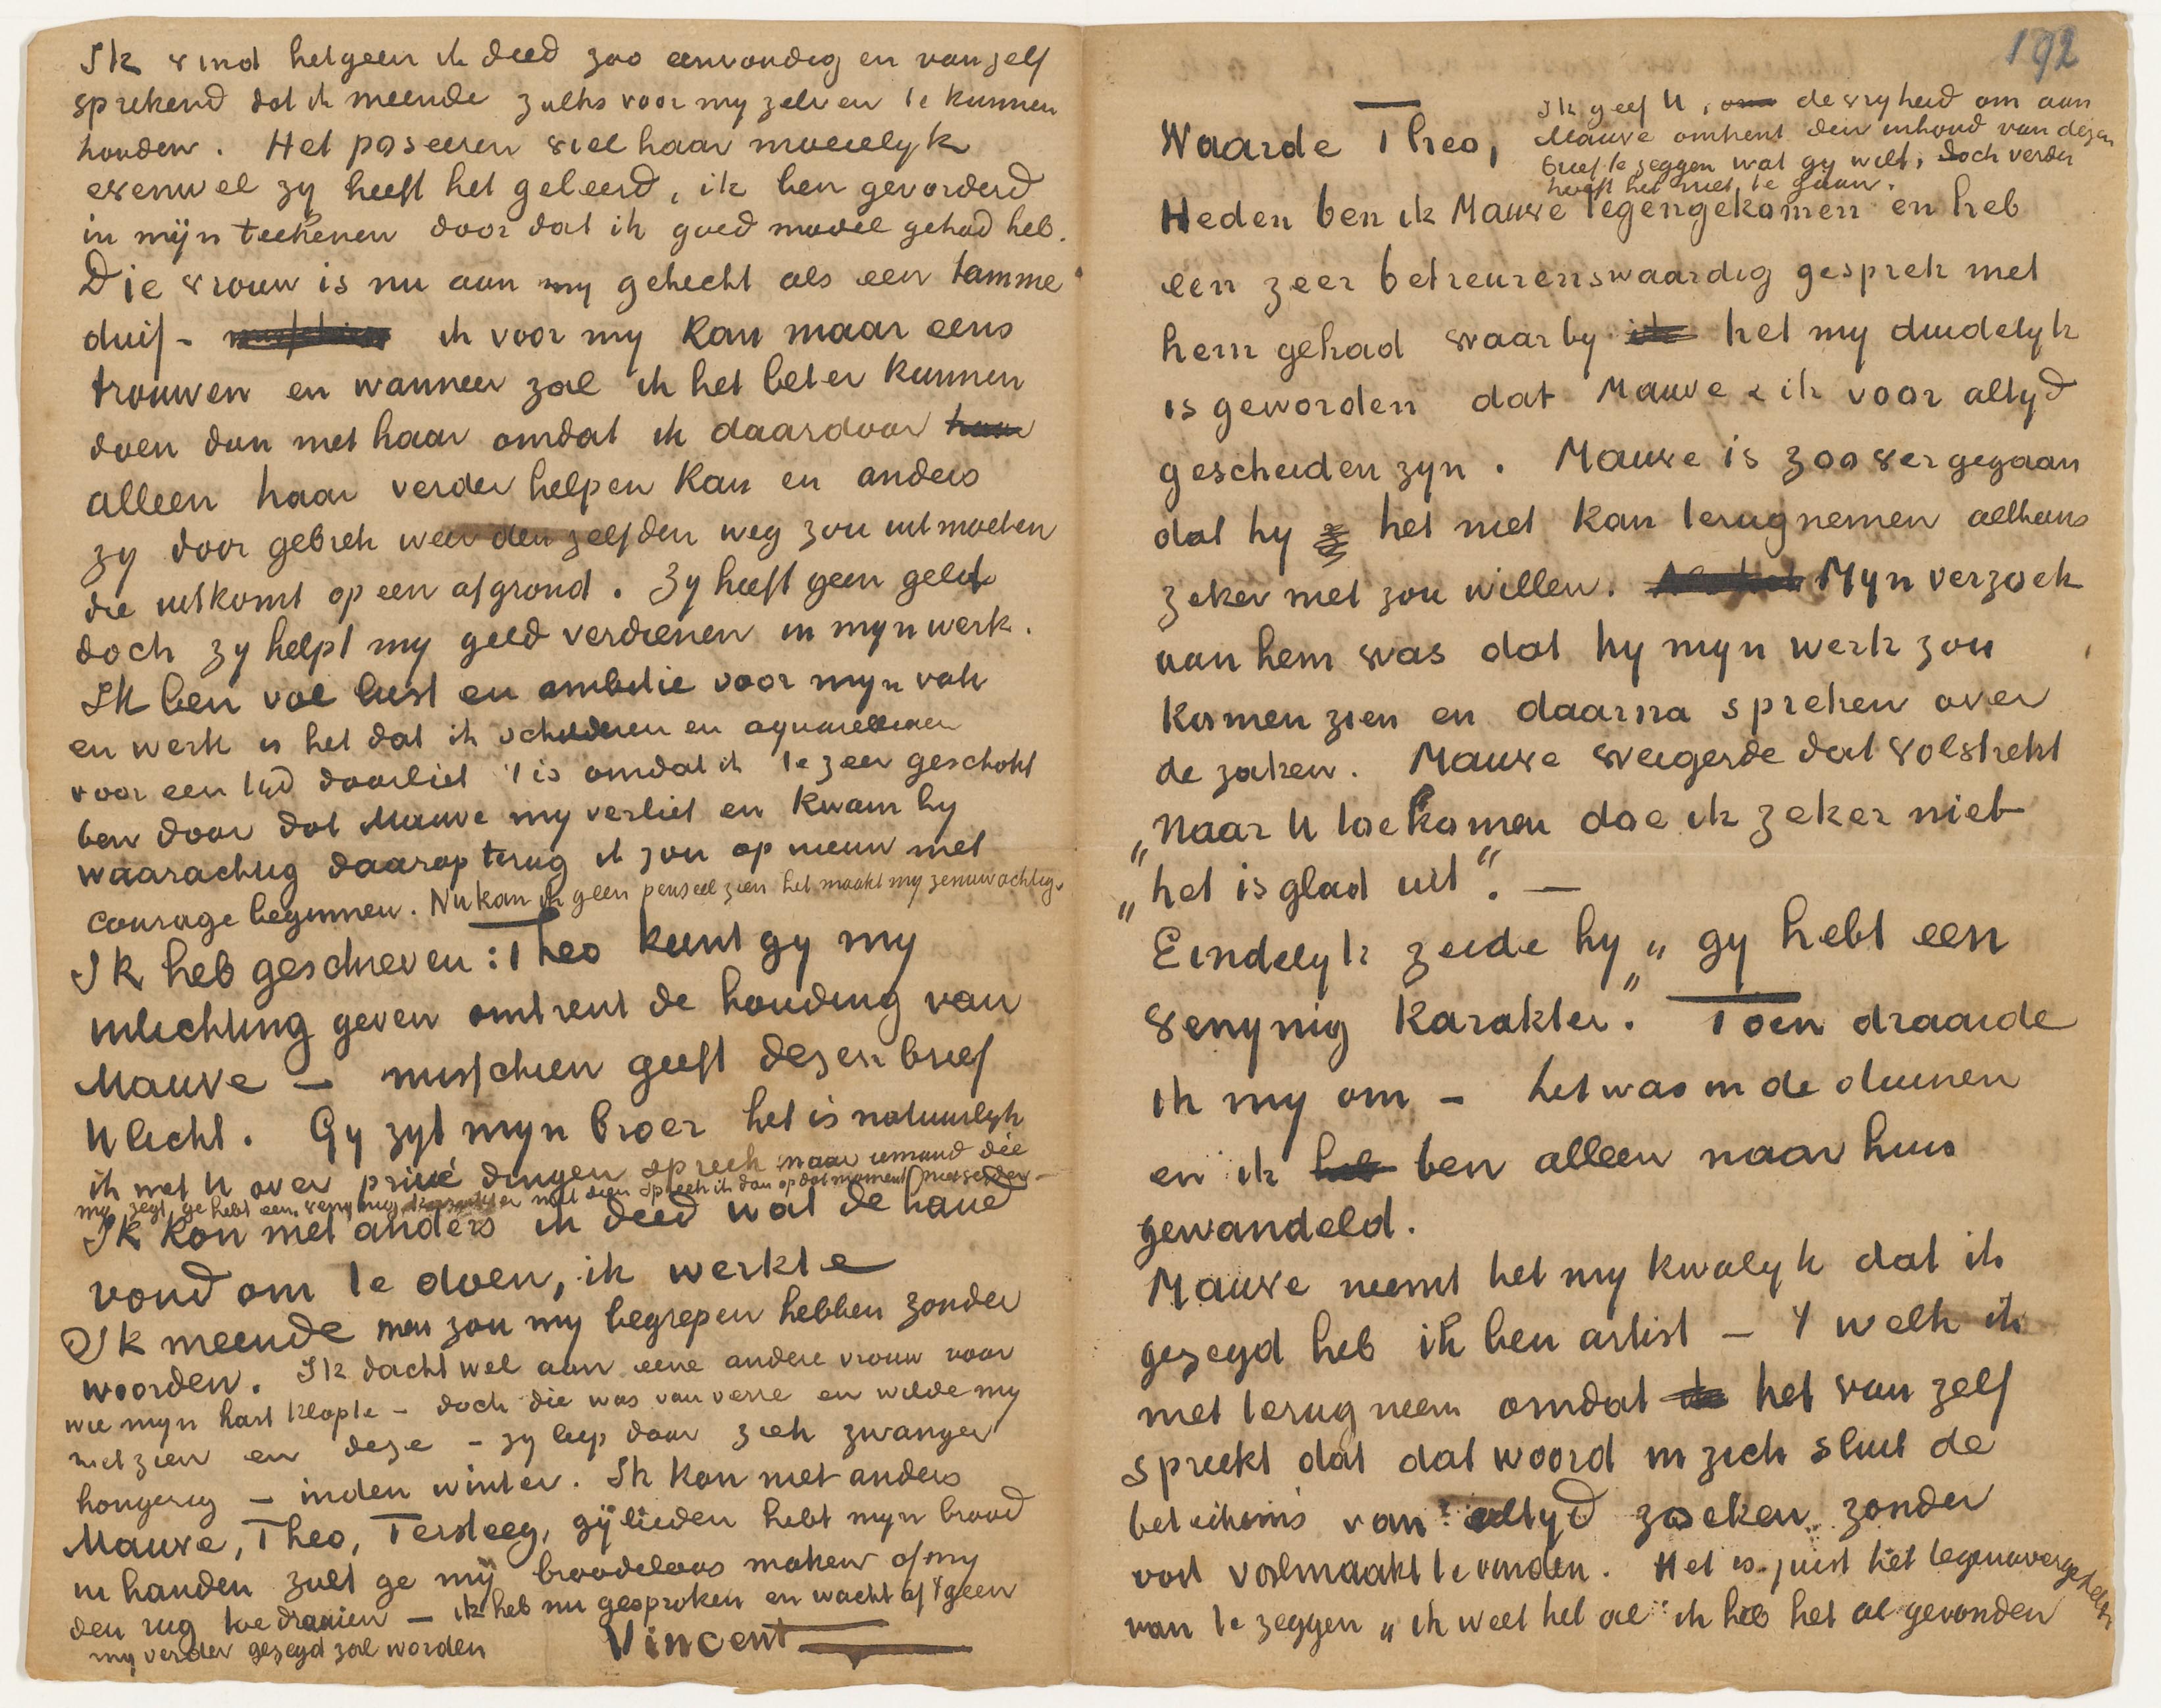 Ik vind hetgeen ik deed zoo eenvoudig en van zelf
sprekend dat ik meende zulks voor my zelven te kunnen
houden. Het poseeren viel haar moeielyk
evenwel zy heeft het geleerd, ik ben gevorderd
in mijn teekenen door dat ik goed model gehad heb.
Die vrouw is nu aan my gehecht als een tamme
duif – ik voor my kan maar eens
trouwen en wanneer zal ik het beter kunnen
doen dan met haar omdat ik daardoor
alleen haar verder helpen kan en anders
zy door gebrek weer den zelfden weg zou uit moeten
die uitkomt op een afgrond. Zy heeft geen geld
doch zy helpt my geld verdienen in myn werk.
Ik ben vol lust en ambitie voor myn vak
en werk is het dat ik schilderen en aquarelleeren
voor een tijd doorliet 't is omdat ik te zeer geschokt
ben door dat Mauve my verliet en kwam hy
waarachtig daarop terug ik zou op nieuw met
courage beginnen. Nu kan ik geen penseel zien het maakt my zenuwachtig.
Ik heb geschreven: Theo kunt gy my
inlichting geven omtrent de houding van
Mauve – misschien geeft dezen brief
U licht. Gy zyt myn broer het is natuurlyk
ik met U over privé dingen spreek maar iemand die
my zegt ge hebt een venynig karakter met dien spreek ik dan op dat moment niet verder –
Ik kon niet anders ik deed wat de hand
vond om te doen, ik werkte
Ik meende men zou my begrepen hebben zonder
woorden. Ik dacht wel aan eene andere vrouw voor
wie myn hart klopte – doch die was van verre en wilde my
niet zien en deze – zy liep daar ziek zwanger
hongerig – in den winter. Ik kon niet anders
Mauve, Theo, Tersteeg, gÿlieden hebt myn brood
in handen zult ge my broodeloos maken of my
den rug toe draaien – ik heb nu gesproken en wacht af 't geen
my verder gezegd zal worden
Vincent
192
Ik geef U, de vryheid om aan
Mauve omtrent den inhoud van dezen
brief te zeggen wat gy wilt, doch verder
hoeft het niet te gaan.
Waarde Theo,
Heden ben ik Mauve tegengekomen en heb
een zeer betreurenswaardig gesprek met
hem gehad waarby het my duidelyk
is geworden dat Mauve & ik voor altyd
gescheiden zyn. Mauve is zoo ver gegaan
dat hy het niet kan terugnemen althans
zeker niet zou willen. Myn verzoek
aan hem was dat hy myn werk zou
komen zien en daarna spreken over
de zaken. Mauve weigerde dat volstrekt
„Naar U toe komen doe ik zeker niet
„het is glad uit". —
Eindelyk zeide hy „gy hebt een
venynig karakter." Toen draaide
ik my om – het was in de duinen
en ik ben alleen naar huis
gewandeld.
Mauve neemt het my kwalyk dat ik
gezegd heb ik ben artist – 't welk ik
niet terug neem omdat het van zelf
spreekt dat dat woord in zich sluit de
beteekenis van altyd zoeken zonder
ooit volmaakt te vinden. Het is juist het tegenovergestelde
van te zeggen „ik weet het al ik heb het al gevonden